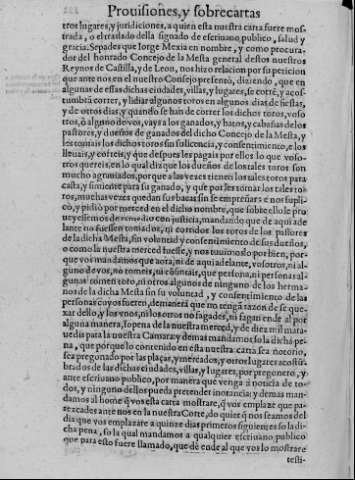 Prouisiones, y sobrecartas
tros lugares, y juridiciones, a quien esta nuestra carta fuere mos-
trada, o el traslado della signado de escriuano publico, salud y
gracia. Sepades que Iorge Mexia en nombre, y como procura-
dor del honrado Concejo de la Mesta general destos nuestros
Reynos de Castilla, y de Leon, nos hizo relacion por su peticion
que ante nos en el nuestro Consejo presentò, diziendo, que en
algunas de essas dichas ciudades, villas, y lugares, se corrẽ, y acos-
tumbrã correr, y lidiar algunos toros en algunos dias de fiestas,
y de otros dias, y quando se han de correr los dichos toros, voso
tros, o alguno de vos, vays a los ganados, y hatos, y cabañas de los
pastores, y dueños de ganados del dicho Concejo de la Mesta, y
les tomais los dichos toros sin su licencia, y consentimiento, e los
lleuais, y correis, y que despues les pagais por ellos lo que voso-
tros quereis, en lo qual diz que los dueños de los tales toros son
mucho agrauiados, porque a las vezes tienen los tales toros para
casta, y simiente para su ganado, y que por les tomar los tales to-
ros, muchas vezes quedan sus bacas sin se empreñar: e nos supli-
cò, y pidiò por merced en el dicho nombre, que sobre ello le pro
ueyessemos de remedio con justicia, mandando que de aqui ade
lante no fuessen tomados, ni corridos los toros de los pastores
de la dicha Mesta, sin voluntad y consentimiento de sus dueños,
o como la nuestra merced fuesse, y nos tuuimoslo por bien, por-
que vos mandamos que aora, ni de aqui adelante, vosotros, ni al-
guno de vos, no tomeis, ni cõsintais, que persona, ni personas al-
gunas tomen toro, ni otros algunos de ninguno de los herma-
nos de la dicha Mesta sin su voluntad, y consentimiento de las
personas cuyos fueren, demanera que no tengã razon de se que-
xar dello, y los vnos, ni los otros no fagades, ni fagan ende al por
alguna manera, so pena de la nuestra merced, y de diez mil mara-
uedis para la nuestra Camara: y demas mandamos so la dicha pe-
na, que porque lo contenido en esta nuestra carta sea notorio,
sea pregonado por las plaças, y mercados, y otros lugares acostũ-
brados de las dichas ciudades, villas, y lugares, por pregonero, y
ante escriuano publico, por manera que venga à noticia de to-
dos, y ninguno dellos pueda pretender inorancia: y demas man-
damos al home q̃ vos esta carta mostrare, q̃ vos emplaze que pa-
rezcades ante nos en la nuestra Corte, do quier q̃ nos seamos del
dia que vos emplazare a quinze dias primeros siguientes so la di-
cha pena, so la qual mandamos a qualquier escriuano publico
que para esto fuere llamado, que dè ende al que vos lo mostrare
testi-